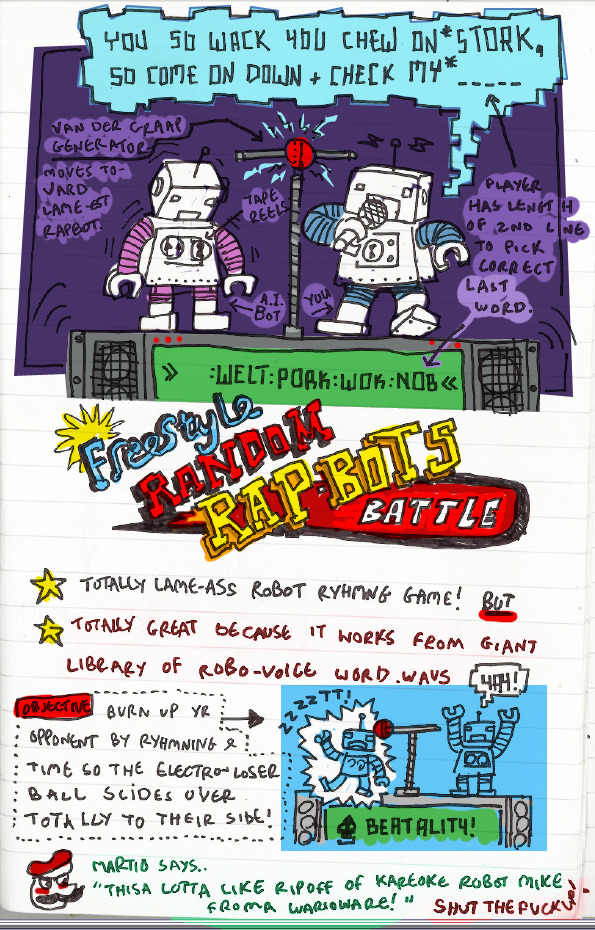 YOU SO WACK YOU CHEW ON *STORK,
SO COME ON DOWN + CHECK MY*_____
VAN DER GRAAF
GENERATOR
MOVES TO-
VARD
LAME-EST
RAPBOT.
TAPE
REELS
PLAYER
HAS LENGTH
OF 2ND LINE
TO PICK
CORRECT
LAST
WORD.
A.I.
BOT
YOU
» :WELT:PORK:WOK:NOB«
Freestyle
RANDOM
RAP-BOTS
BATTLE
TOTALLY LAME-ASS ROBOT RYHMNG GAME! BUT
TOTALLY GREAT BECAUSE IT WORKS FROM GIANT
LIBRARY OF ROBO-VOICE WORD.WAVS
OBJECTIVE BURN UP YR
OPPONENT BY RYHMNING &
TIME SO THE ELECTRO-LOSER
BALL SLIDES OVER
TOTALLY TO THEIR SIDE!
ZZZZTT!
404!
BEATALITY!
MARTIO SAYS..
"THISA LOTTA LIKE RIPOFF OF KAREOKE ROBOT MIKE
FROMA WARIOWARE!" SHUT THE FUCK UP!